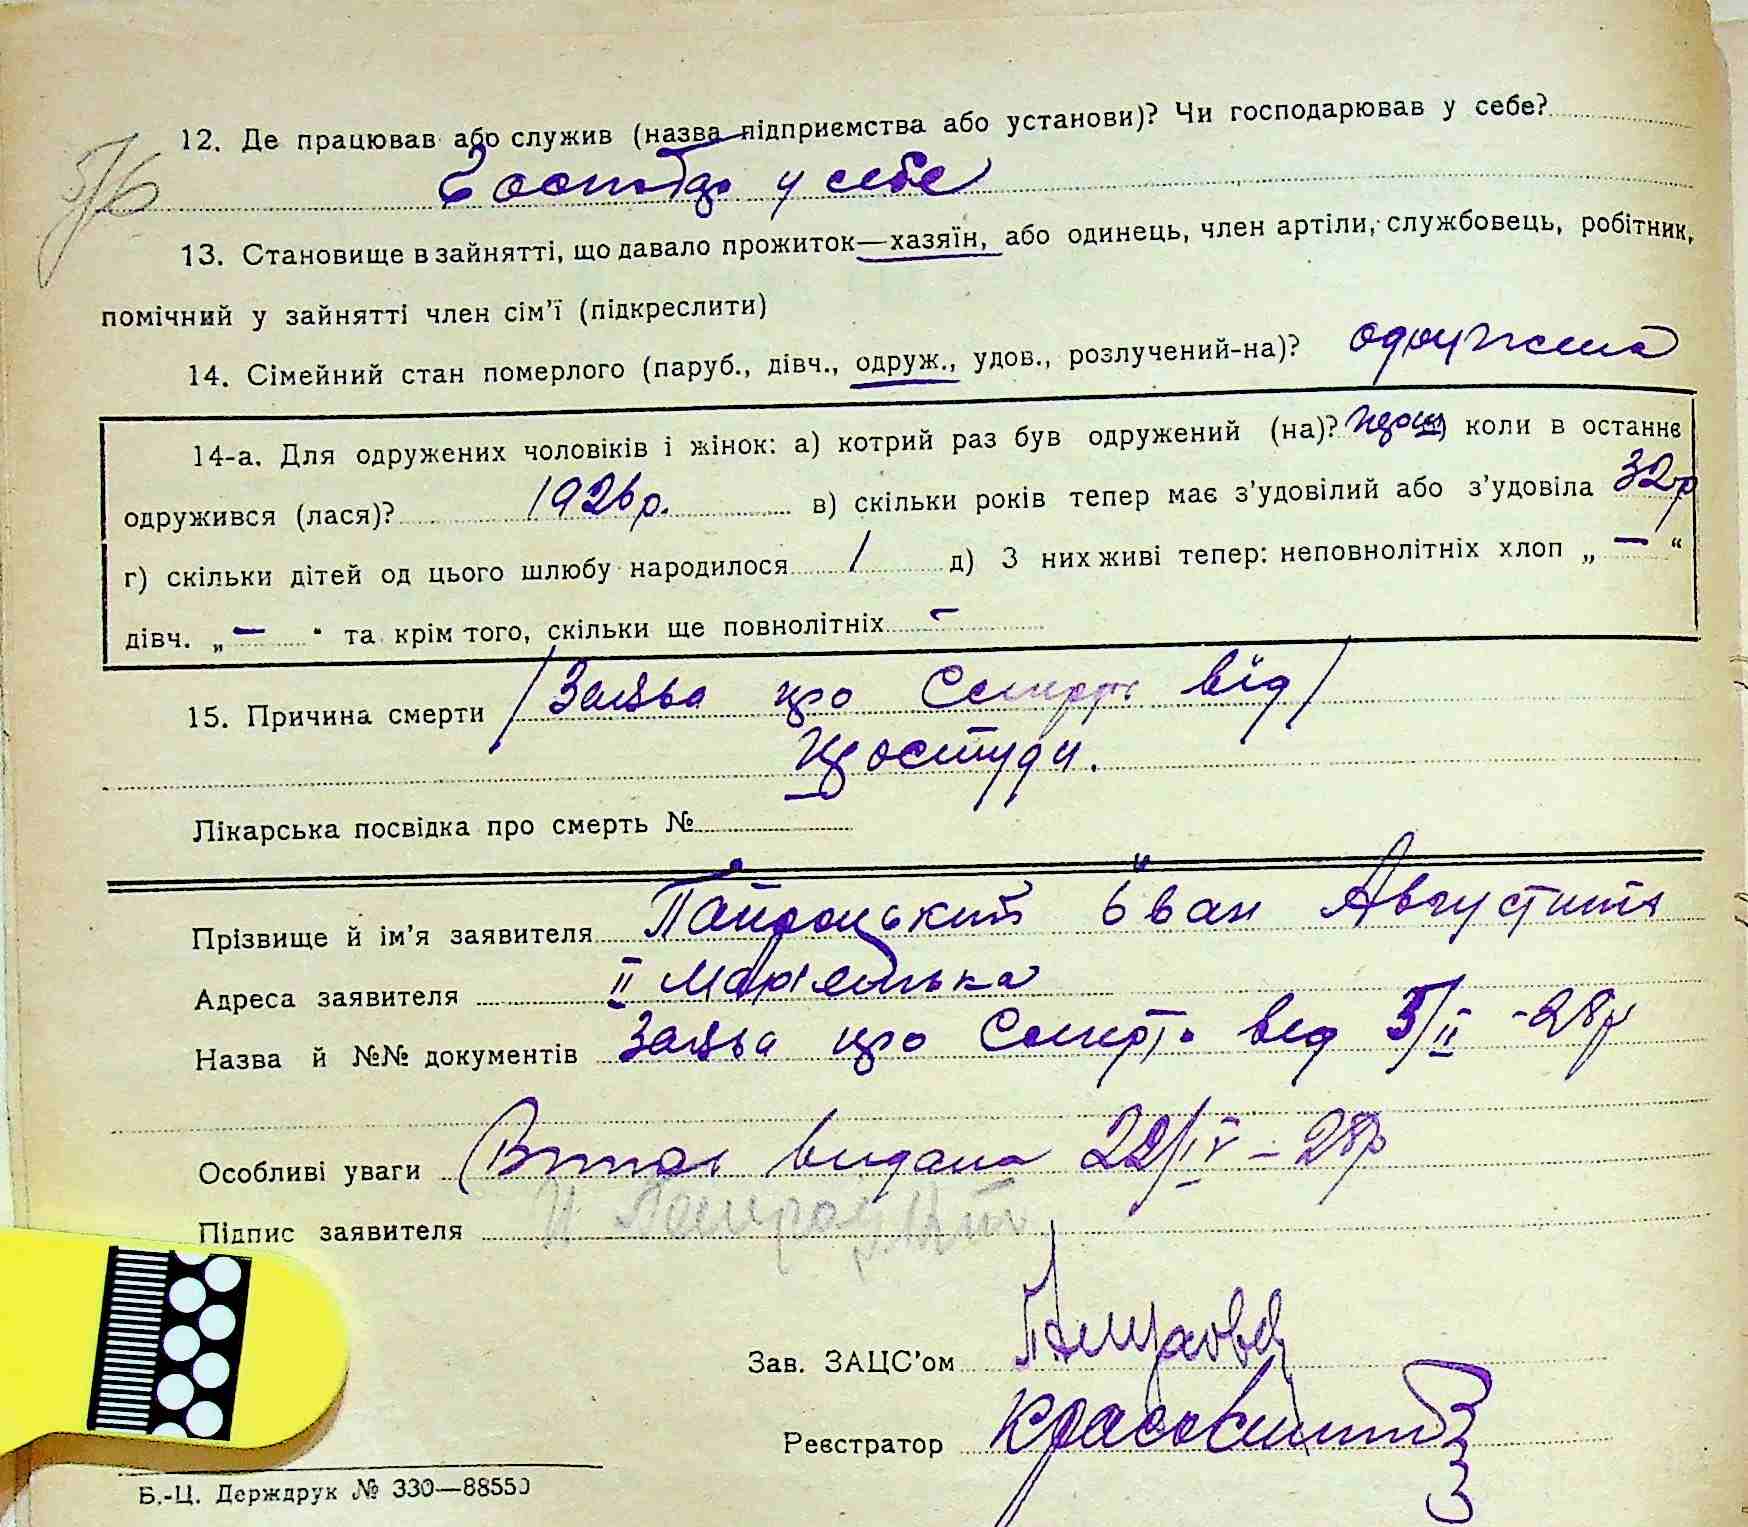 12. Де працював або служив (назва підприємства або установи)? Чи господарював у себе?
у себе
13. Становище в зайнятті, що давало прожиток—хазяїн, або одинець, член артіли, службовець, робітник,
помічний у зайнятті член сім'ї (підкреслити)
14. Сімейний стан померлого (паруб., дівч., одруж., удов., розлучений-на)? одружена
14-а. Для одружених чоловіків і жінок: а) котрий раз був одружений (на)? коли в останнє
одружився (лася)? 1926 р. в) скільки років тепер має з'удовілий або з'удовіла 32 р
г) скільки дітей од цього шлюбу народилося 1 д) З них живі тепер: неповнолітніх хлоп „ — “
дівч. „ — “ та крім того, скільки ще повнолітніх —
15. Причина смерти / Заява про Смерть від /
простуди.
Лікарська посвідка про смерть №
Прізвище й ім'я заявителя Іван
Адреса заявителя ІІ
Назва й №№ документів Заява про Смерть від 5/ІІ - 28 р
Особливі уваги видана 22/IV – 28 р
Підпис заявителя
Зав. ЗАЦС'ом
Реєстратор
Б.-Ц. Держдрук № 330—88550